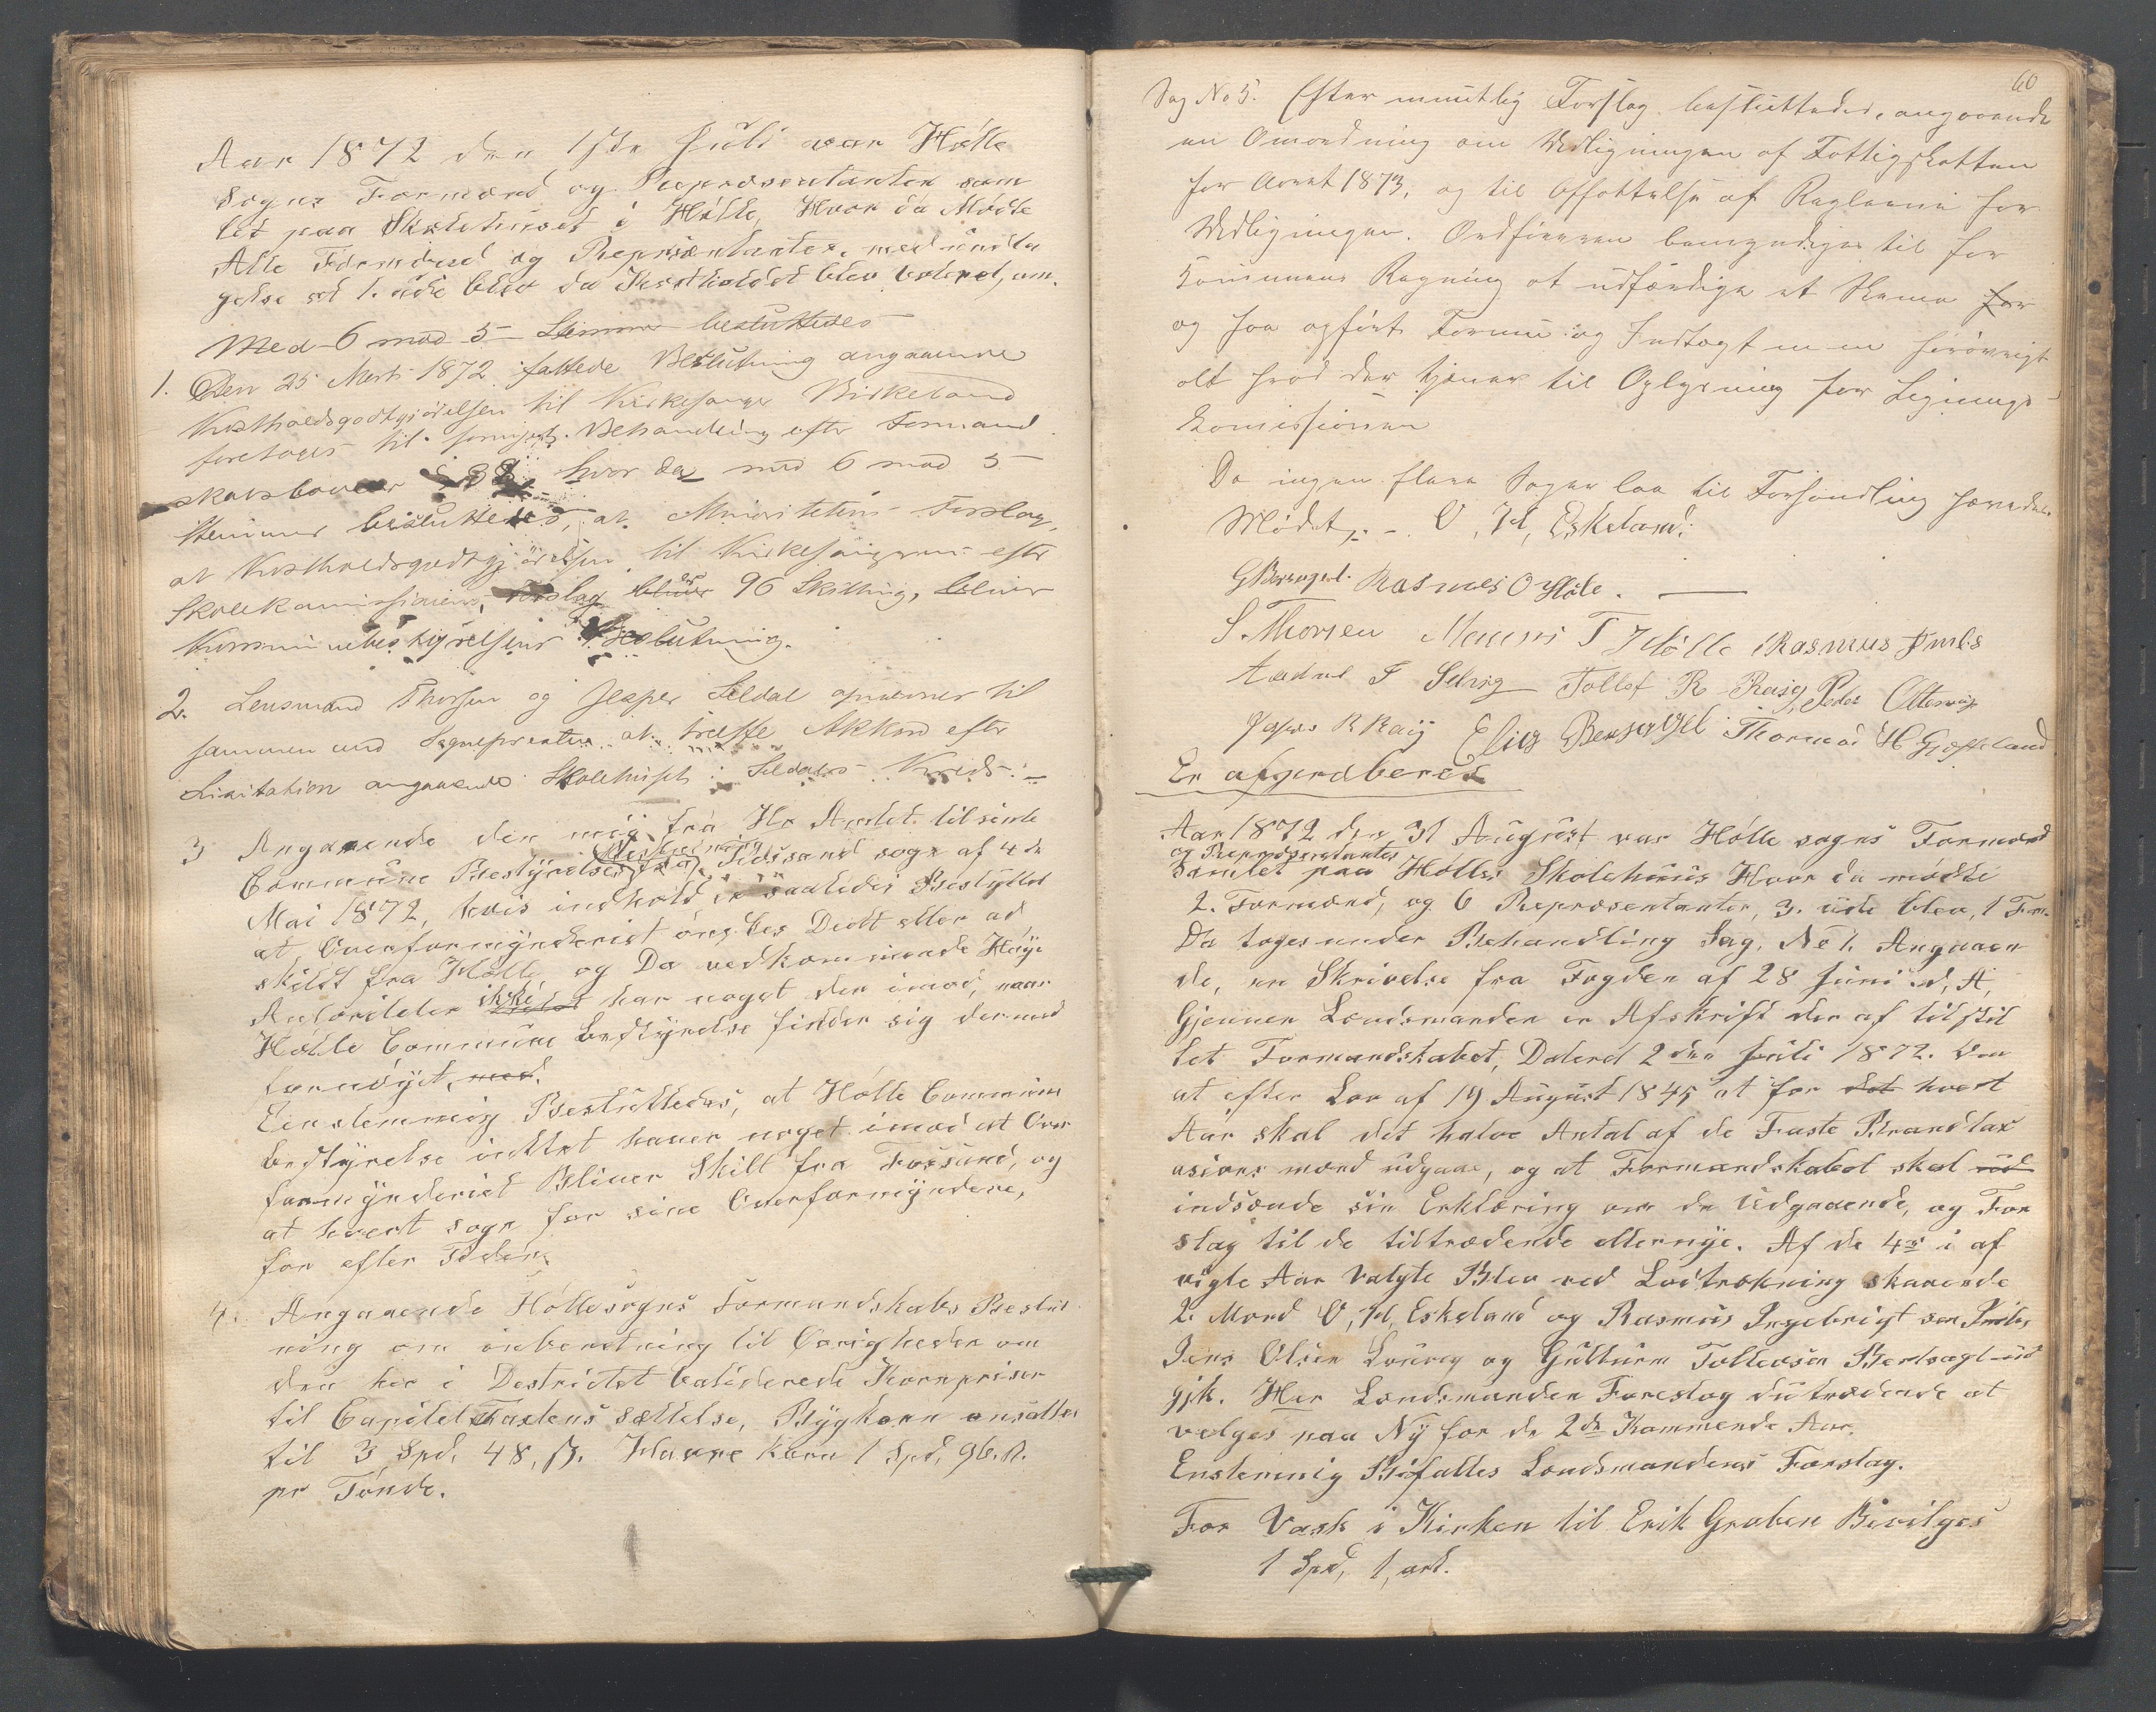 Aar 1872 den 1ste Juli var Hølle
Sogns Formænd og Repræsentanter sam
let paa Skolehuset i Hølle, Hvor da Mødte
Alle Formænd og Repræsentanter, med undta
gelse at 1. ude blev da Kostholdet blev voteret, om.
Med 6 mod 5 Stemmer besluttedes
1. Den 25 Marts 1872 fattede Beslutning angaaende
Kostholdsgodtgjørelsen til Kirkesanger Birkeland
foretages til fornyet Behandling efter Formand
skabsloven hvor da med 6 mod 5
Stemmer besluttedes, at Minoritetens Forslag,
at Kostholdsgodtgjørelsen til Kirkesangeren efter
Skolekommissionens Forslag bliver er 96 Skilling, bliver
Kommunebestyrelsens Beslutning.
2. Lensmand Thorsen og Jesper Seldal opnævnes til
sammen med Sognepresten at træffe Akkord efter
Licitation angaaende Skolehuset i Seldals Kreds.
3 Angaaende den mig fra Hr Amtet tilsendte
Commune Bestyrelses Beslutning fra Fossand sogn af 4de
Mai 1872, hvis indhold er saaledes Besluttet
at Overformynderiet ønskes Deelt eller ad
skildt fra Hølle, og Da vedkommende Høye
Autoriteter ikke har noget der imod, naar
Hølle Commune bestyrelse finder sig dermed
fornøyet, med.
Einstemmig Besluttedes, at Hølle Commune
bestyrelse ikke haver noget imod at Over
formynderiet Bliver Skilt fra Fossand, og
at hvert sogn for sine Overformyndere,
for efter Tiden.
4. Angaaende Høllesogns Formandskabs Beslut
ning om indberetning til Øvrigheden om
den her i Destrictet Validerede Kornpriser
til Capitel Taxtens sættelse, Bygkorn ansættes
til 3 Spd. 48, ß. Havre Korn 1 Spd, 96. ß.
pr Tønde.
60
Sag No 5. Efter mundtlig Forslag besluttedes, angaaende
en Omordning om Udligningen af Fattigskatten
for Aaret 1873, og til Affattelse af Reglerne for
Udligningen. Ordføreren bemyndiges til for
Kommunens Regning at udfærdige et Skema for
og paa opført Formue og Indtægt men forøvrigt
alt hvad der tjener til Oplysning for Lignings-
Komissionen
Da ingen flere Sager laa til Forhandling hævedes
Mødet. - O, Id, Eskeland.
G Bersagel. Rasmus O Hølle.
S. Thorsen Mauris T Hølle Rasmus Imbs
Aadne T Selvig Tollef R Reig, Peder Ottersen
Jesper R Raig Elias Bersagel Thormod H Gjesteland
Er afsendberet
Aar 1872 den 31 August var Hølle sogns Formænd
og Repræsentanter
Samlet paa Hølles Skolehuus Hvor da mødte
2. Formænd, og 6 Repræsentanter, 3. ude blev, 1 For.
Da toges under Behandling Sag, No 1. Angaaen
de, en Skrivelse fra Fogden af 28 Juni d, A,
Gjennem Lensmanden er Afskrift der af tilstil
let Formandskabet, Daterd 2den Juli 1872. Om
at efter Lov af 19 August 1845 at for det hvert
Aar skal det halve Antal af de Faste Brandtax
asions mænd udgaae, og at Formandskabet skal ud
indsænde sin Erklæring om de Udgaaende, og For
slag til de tiltrædende eller nye. Af de 4re i af
vigte Aar Valgte Blev ved Lodtrækning skaaende
2. Mænd O, Id, Eskeland og Rasmus Ingebrigtsen Imbs,
Jens Olsen Louvig og Guttorm Tollevsen Bersagl ud
gjk. Her Lendsmanden Foreslog du trædende at
vælges paa Ny for de 2de Kommende Aar.
Enstemmig Bifaltes Lendsmandens Forslag.
For Vask i Kirken til Erik Graben Bevilges
1 Spd, 1, ort.